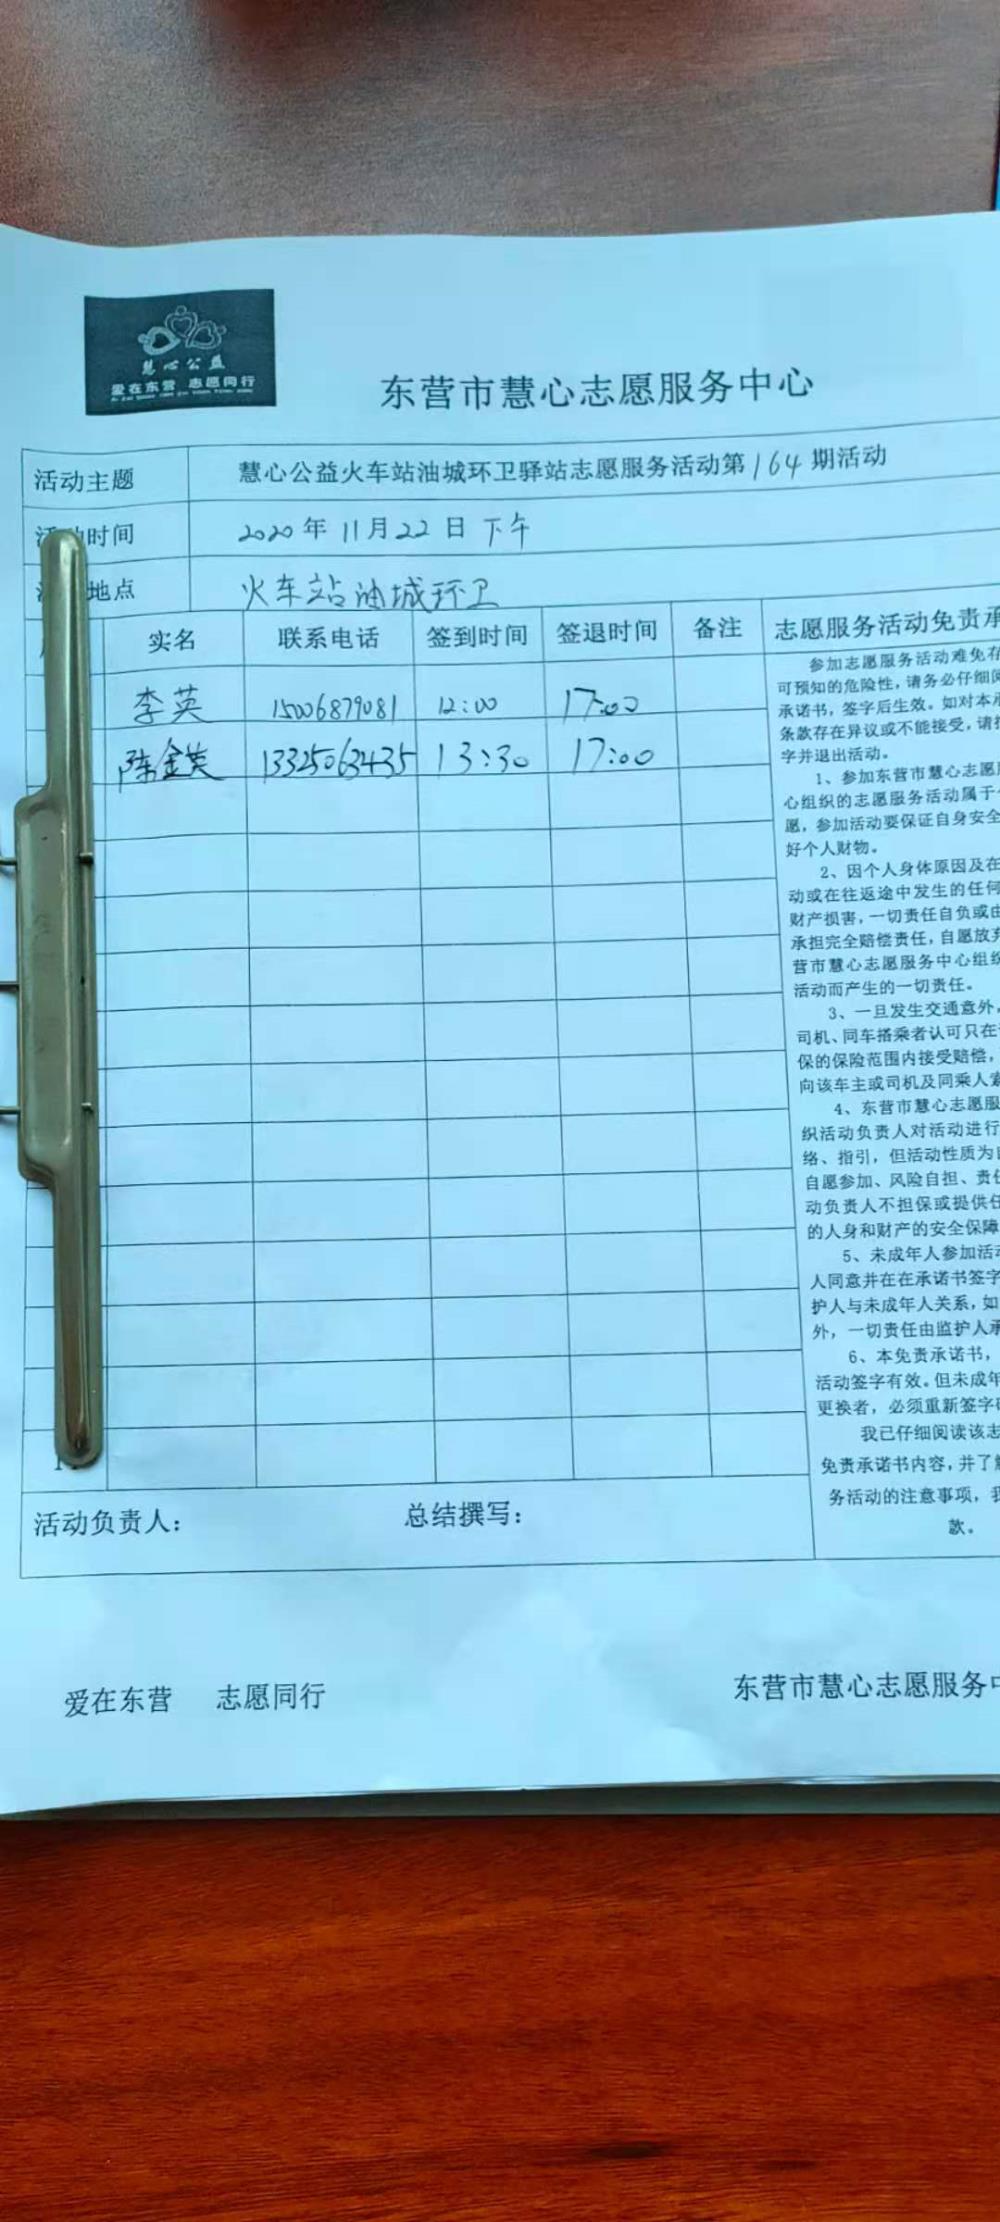 慧心公益
爱在东营 志愿同行
东营市慧心志愿服务中心
活动主题 慧心公益火车站油城环卫驿站志愿服务活动第164期活动
时间 2020年11月22日下午
地点 火车站油城环卫
实名 联系电话 签到时间 签退时间 备注 志愿服务活动免责承
李英 15006879081 12:00 17:00
陈金英 13325063435 13:30 17:00
参加志愿服务活动难免存
可预知的危险性，请务必仔细阅
承诺书，签字后生效。如对本承
条款存在异议或不能接受，请
字并退出活动。
1、参加东营市慧心志愿
心组织的志愿服务活动属于
愿，参加活动要保证自身安全
好个人财物。
2、因个人身体原因及在
动或在往返途中发生的任何
财产损害，一切责任自负或由
承担完全赔偿责任，自愿放弃
营市慧心志愿服务中心组织
活动而产生的一切责任。
3、一旦发生交通意外，
司机、同车搭乘者认可只在
保的保险范围内接受赔偿，
向该车主或司机及同乘人索
4、东营市慧心志愿服
织活动负责人对活动进行
络、指引，但活动性质为自
自愿参加、风险自担、责任
动负责人不担保或提供任
的人身和财产的安全保障
5、未成年人参加活动
人同意并在在承诺书签字
护人与未成年人关系，如
外，一切责任由监护人承
6、本免责承诺书，
活动签字有效。但未成年
更换者，必须重新签字确
我已仔细阅读该志
免责承诺书内容，并了解
务活动的注意事项，我
款。
活动负责人： 总结撰写：
爱在东营 志愿同行 东营市慧心志愿服务中